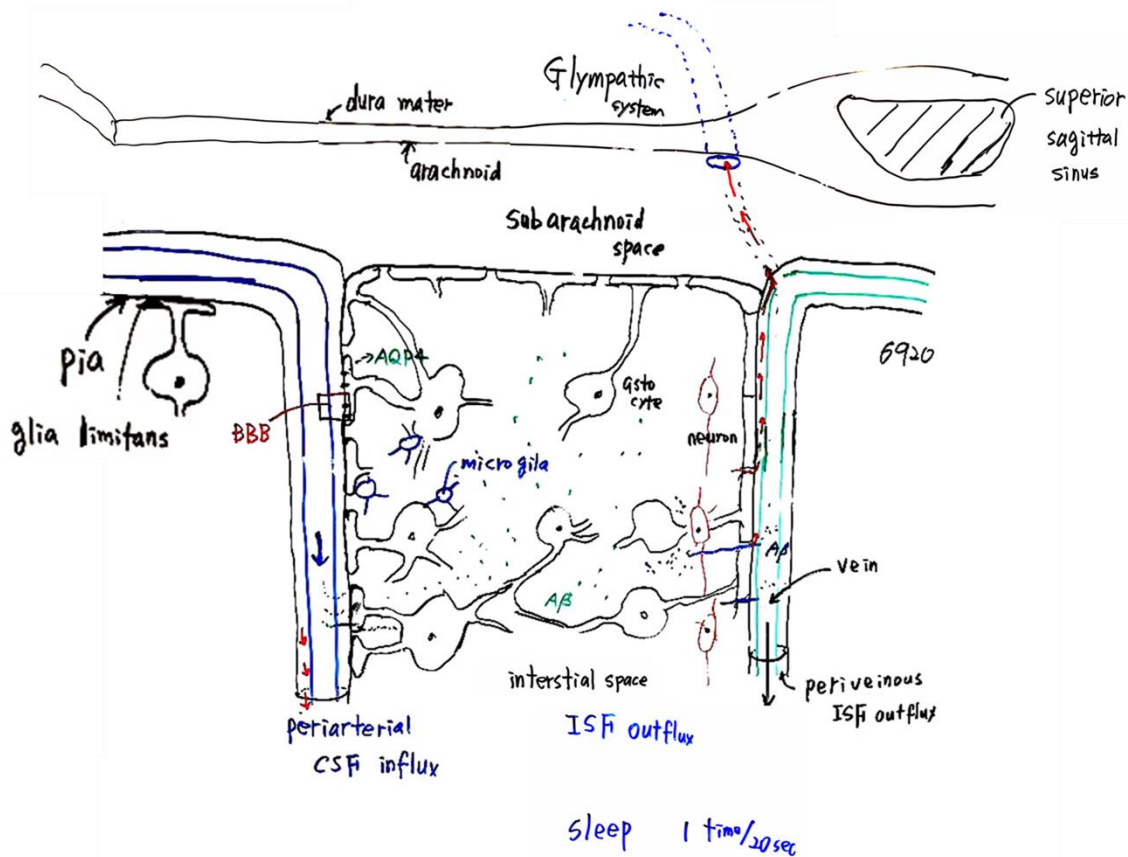 Glympathic
system
dura mater
arachnoid
superior
sagittal
sinus
subarachnoid
space
pia
glia limitans
BBB
AQP4
asto
cyte
neuron
6920
microgila
Aβ
Aβ
vein
interstial space
periveinous
ISF outflux
periarterial
CSF influx
ISF outflux
sleep 1 time/20sec